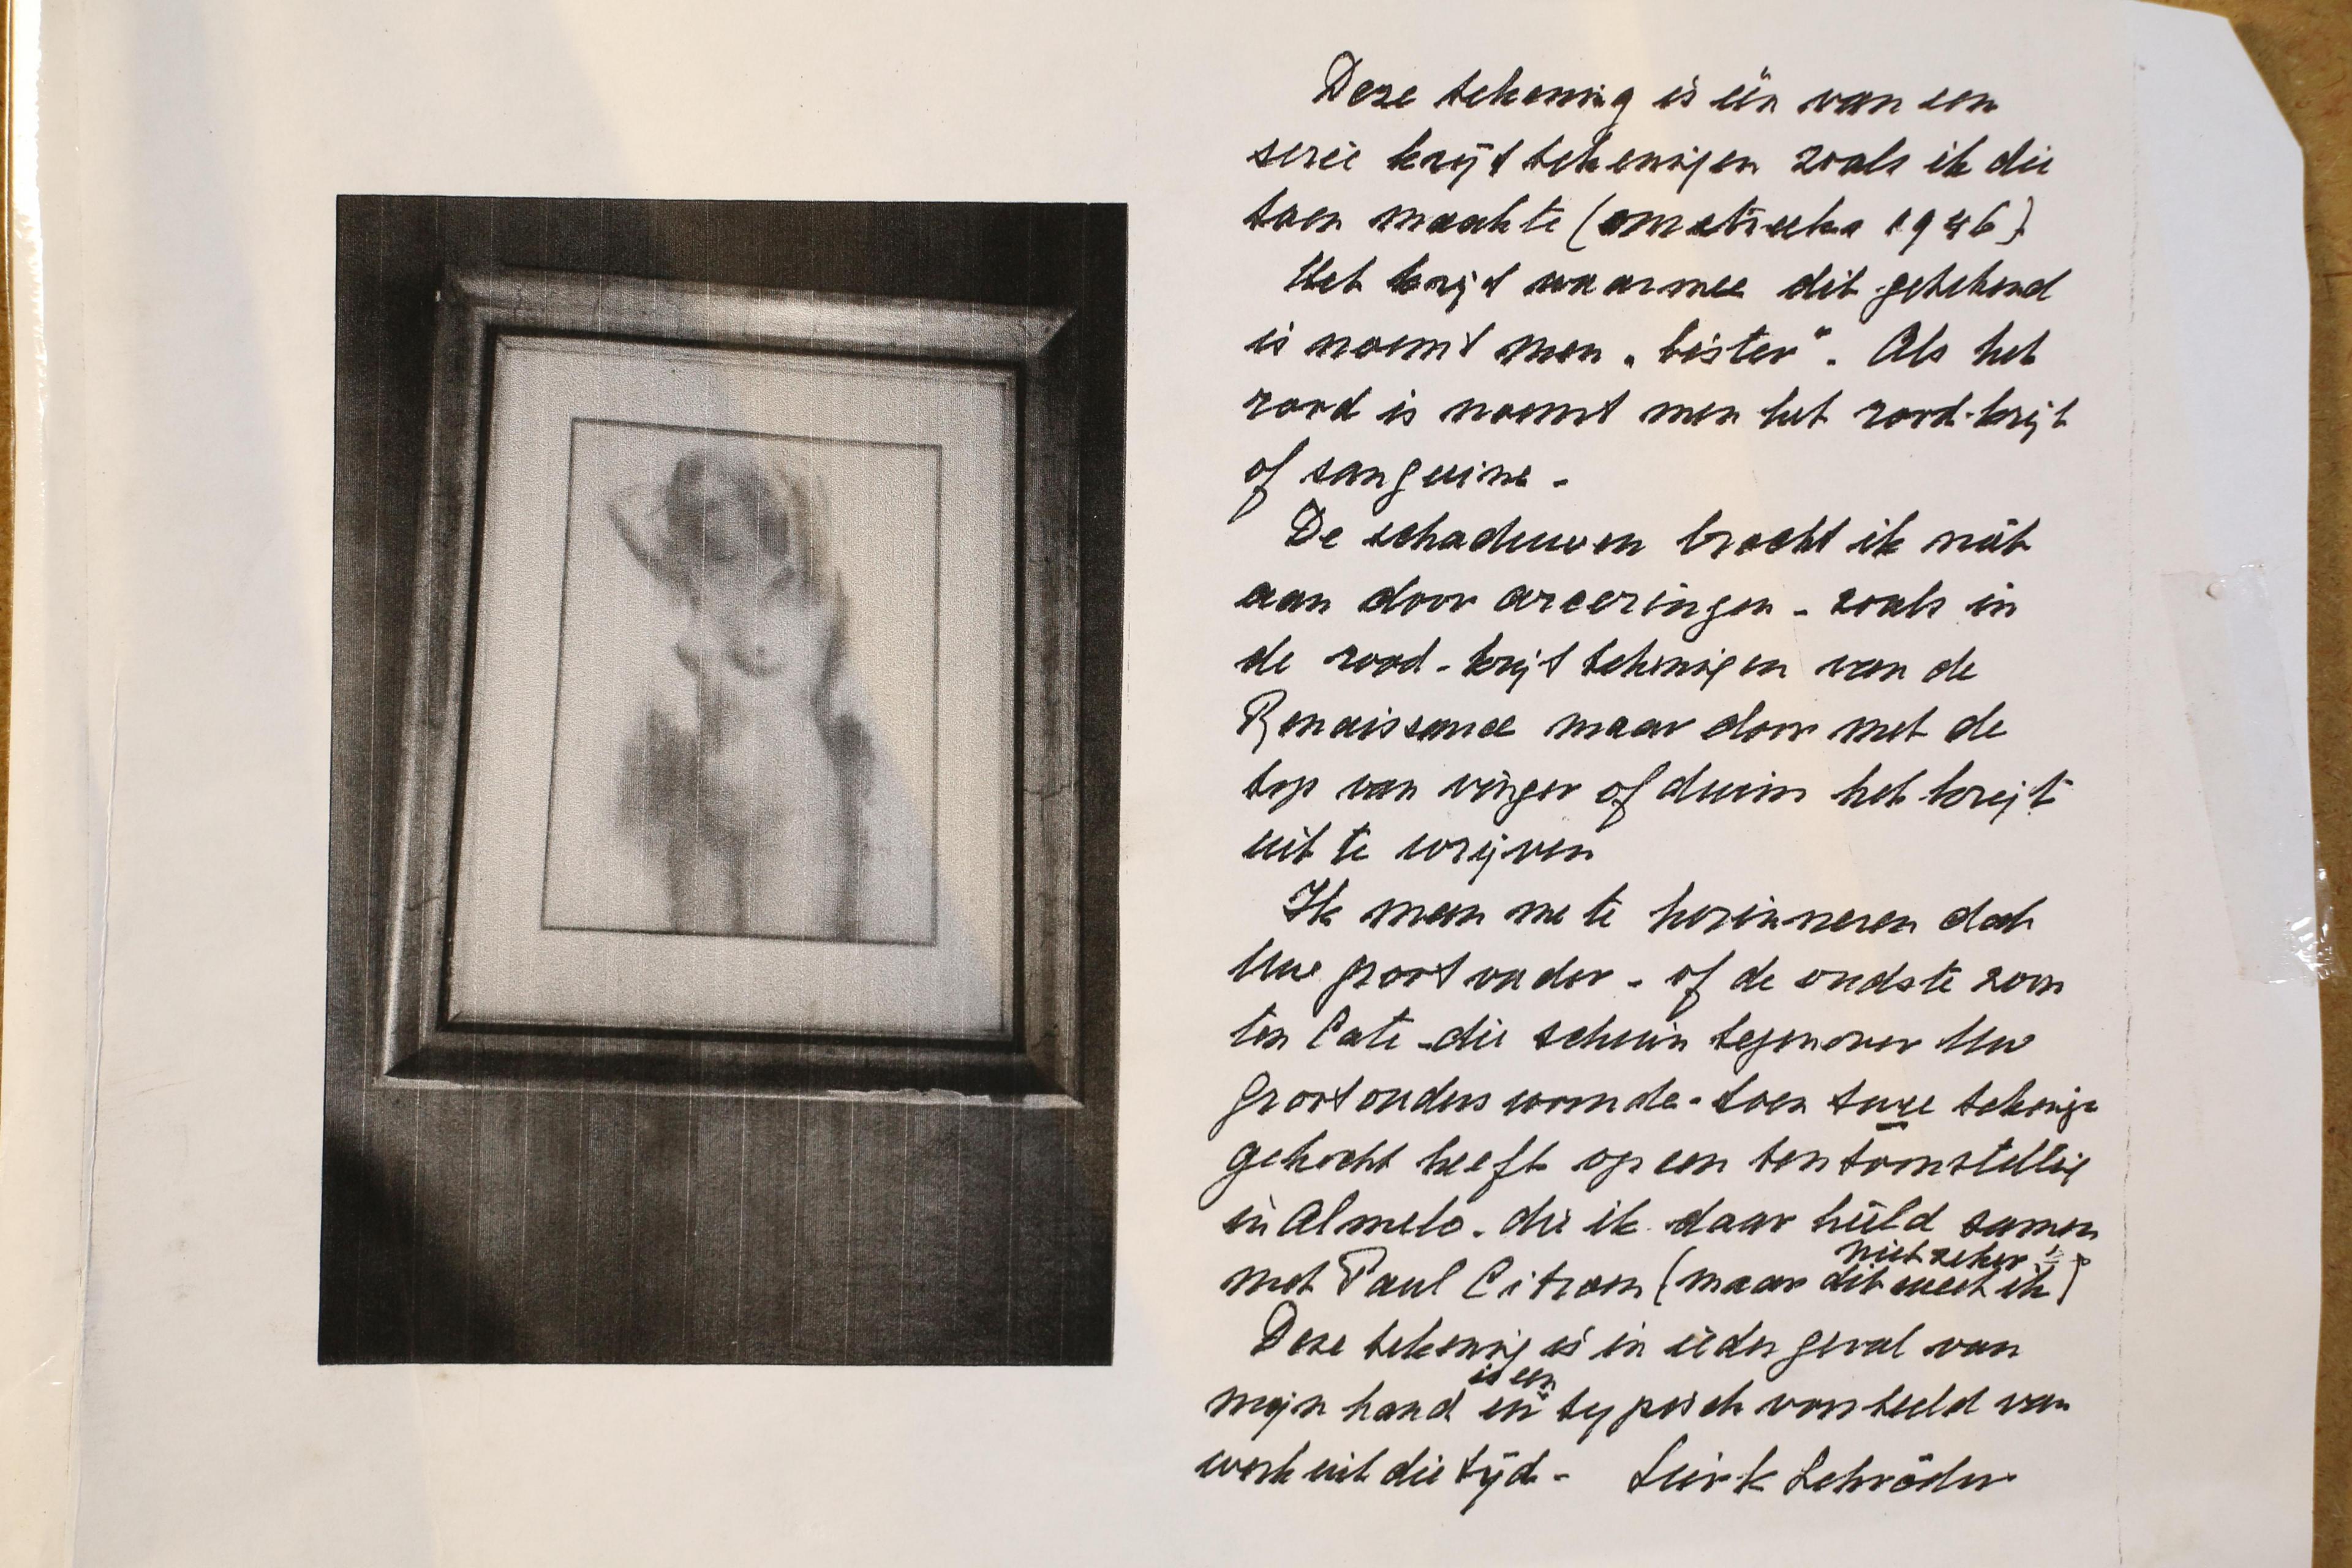 Deze tekening is één van een
serie krijttekeningen zoals ik die
toen maakte (omstreeks 1946)
Het krijt waarmee dit getekend
is noemt men „bister". Als het
rood is noemt men het rood-krijt
of sanguine -
De schaduwen bracht ik niet
aan door arceringen - zoals in
de rood-krijttekeningen van de
Renaissance maar door met de
top van vinger of duim het krijt
uit te wrijven
Ik meen me te herinneren dat
Uwe grootvader - of de oudste zoon
ten Cate - die schuin tegenover Uw
grootouders woonde - toen twee tekeninge
gekocht heeft op een tentoonstelling
in Almelo - die ik daar hield samen
met Paul Citroen (maar dit weet ik niet zeker)
Deze tekening is in ieder geval van
mijn hand is een typisch voorbeeld van
werk uit die tijd - Sierk Schröder